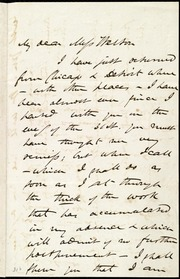 My dear Miss Weston
I have just returned
from Chicago & Detroit where
– with other places – I have
been almost ever since I
parted with you in the
of the 21st. You must
have thought me very
remiss; but when I call
– which I shall do as
soon as I get through
the thick of the work
that has accumulated
in my absence & which
will admit of no further
postponement – I shall
show you that I am